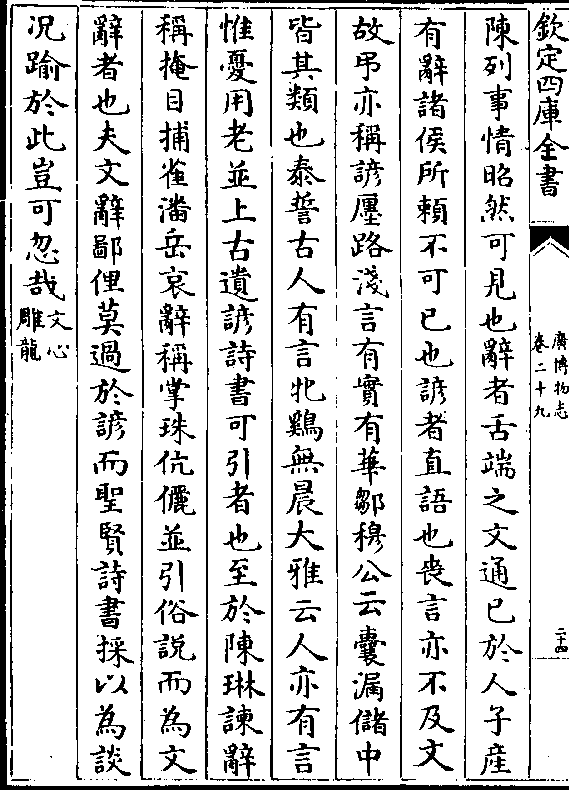 欽定四庫全書
廣博物志
卷二十九
二十四
陳列事情昭然可見也辭者舌端之文通已於人子産
有辭諸侯所頼不可已也諺者直語也喪言亦不及文
故弔亦稱諺廛路淺言有實有華鄒穆公云囊漏儲中
皆其類也泰誓古人有言牝鷄無晨大雅云人亦有言
惟憂用老並上古遺諺詩書可引者也至於陳琳諫辭
稱掩目捕雀潘岳哀辭稱掌珠伉儷並引俗説而為文
辭者也夫文辭鄙俚莫過於諺而聖賢詩書採以為談
况踰於此豈可忽哉文心
雕龍